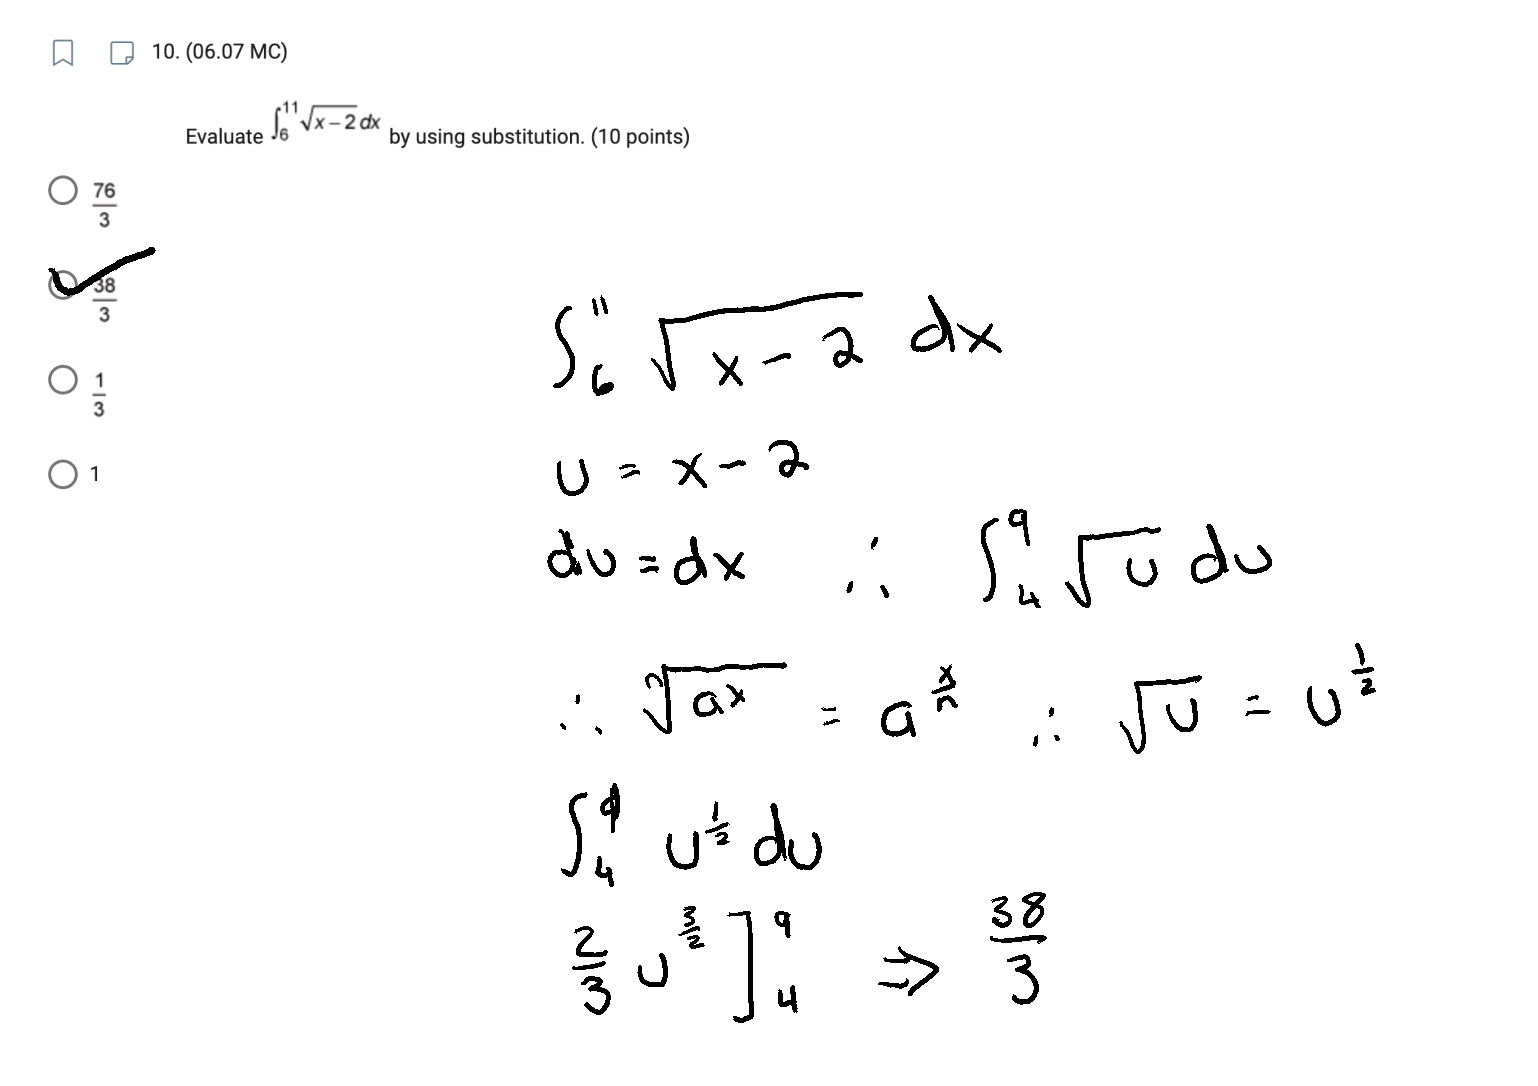 10. (06.07 MC)
Evaluate ∫₆¹¹ √(x − 2) dx by using substitution. (10 points)
76/3
38/3
1/3
1
∫₆¹¹ √(x − 2) dx
u = x − 2
du = dx ∴ ∫₄⁹ √u du
∴ ⁿ√(aˣ) = a^(x/n) ∴ √u = u^(1/2)
∫₄⁹ u^(1/2) du
2/3 u^(3/2) ]₄⁹ ⇒ 38/3